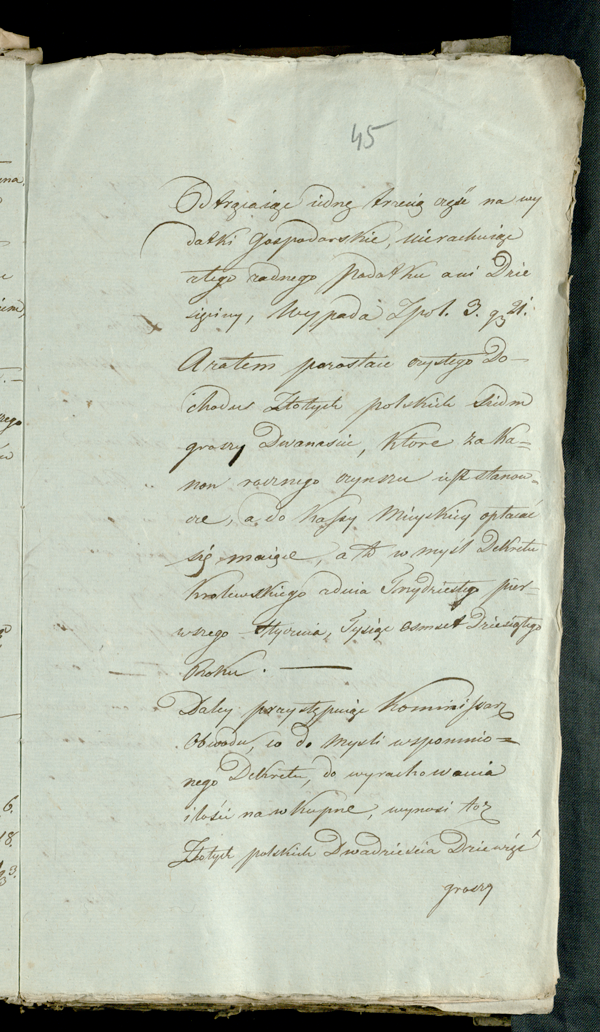 45
Odtrąciaiąc iedną trzecią część na wy
datki Gospodarskie, nierachuiąc
ztego żadnego Podatku ani Dzie
sięciny, Wypada Zpol. 3. gr 21.
A zatem pozostaie czystego Do-
chodu Złotych polskich siedm
groszy Dwanaście, które za Ka-
non rocznego czynszu ustanow-
a do Kassy Mieyskiey opłacać
się maiące, a to w myśl Dekretu
Krolewskiego zdnia Trzydziestego pier-
wszego Stycznia, Tysiąc Osmset Dziesiątego
Roku. —
Daley przystępuiąc Kommissarz
Obwodu, co do myśli wspomnio=
nego Dekretu, do wyrachowania
ilości na wkupne, wynosi toż
Złotych polskich Dwadzieścia Dziewięć
groszy
6.
18.